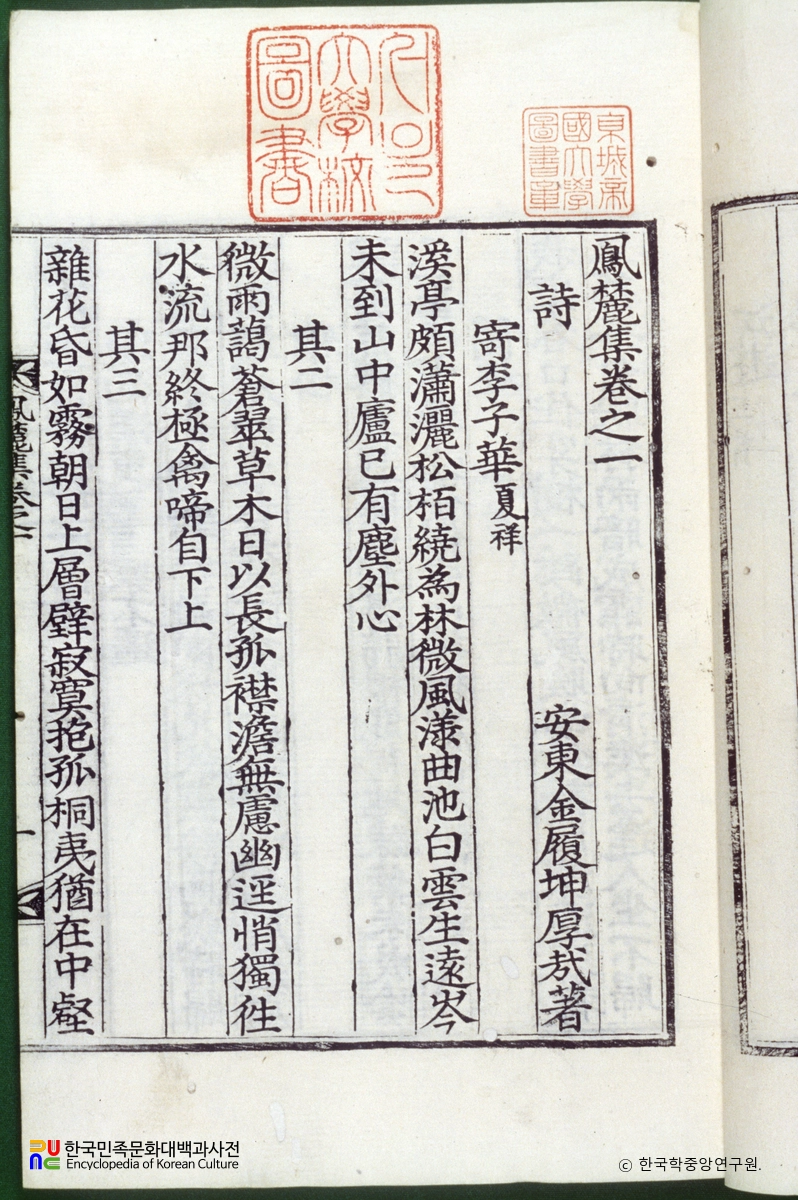 京城帝
國大學
圖書章
서울
大學校
圖書
鳳麓集卷之一
詩 安東金履坤厚哉著
寄李子華夏祥
溪亭頗瀟灑松栢繞為林微風漾曲池白雲生遠岑
未到山中廬已有塵外心
其二
微雨藹蒼翠草木日以長孤襟澹無慮幽逕悄獨往
水流那終極禽啼自下上
其三
雜花昏如霧朝日上層壁寂寞抱孤桐夷猶在中壑
鳳麓集卷之一 一
한국민족문화대백과사전
Encyclopedia of Korean Culture
© 한국학중앙연구원.